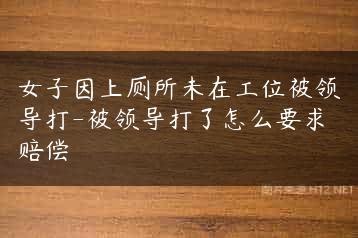 女子因上厕所未在工位被领
导打-被领导打了怎么要求
赔偿
图片来源H12.NET